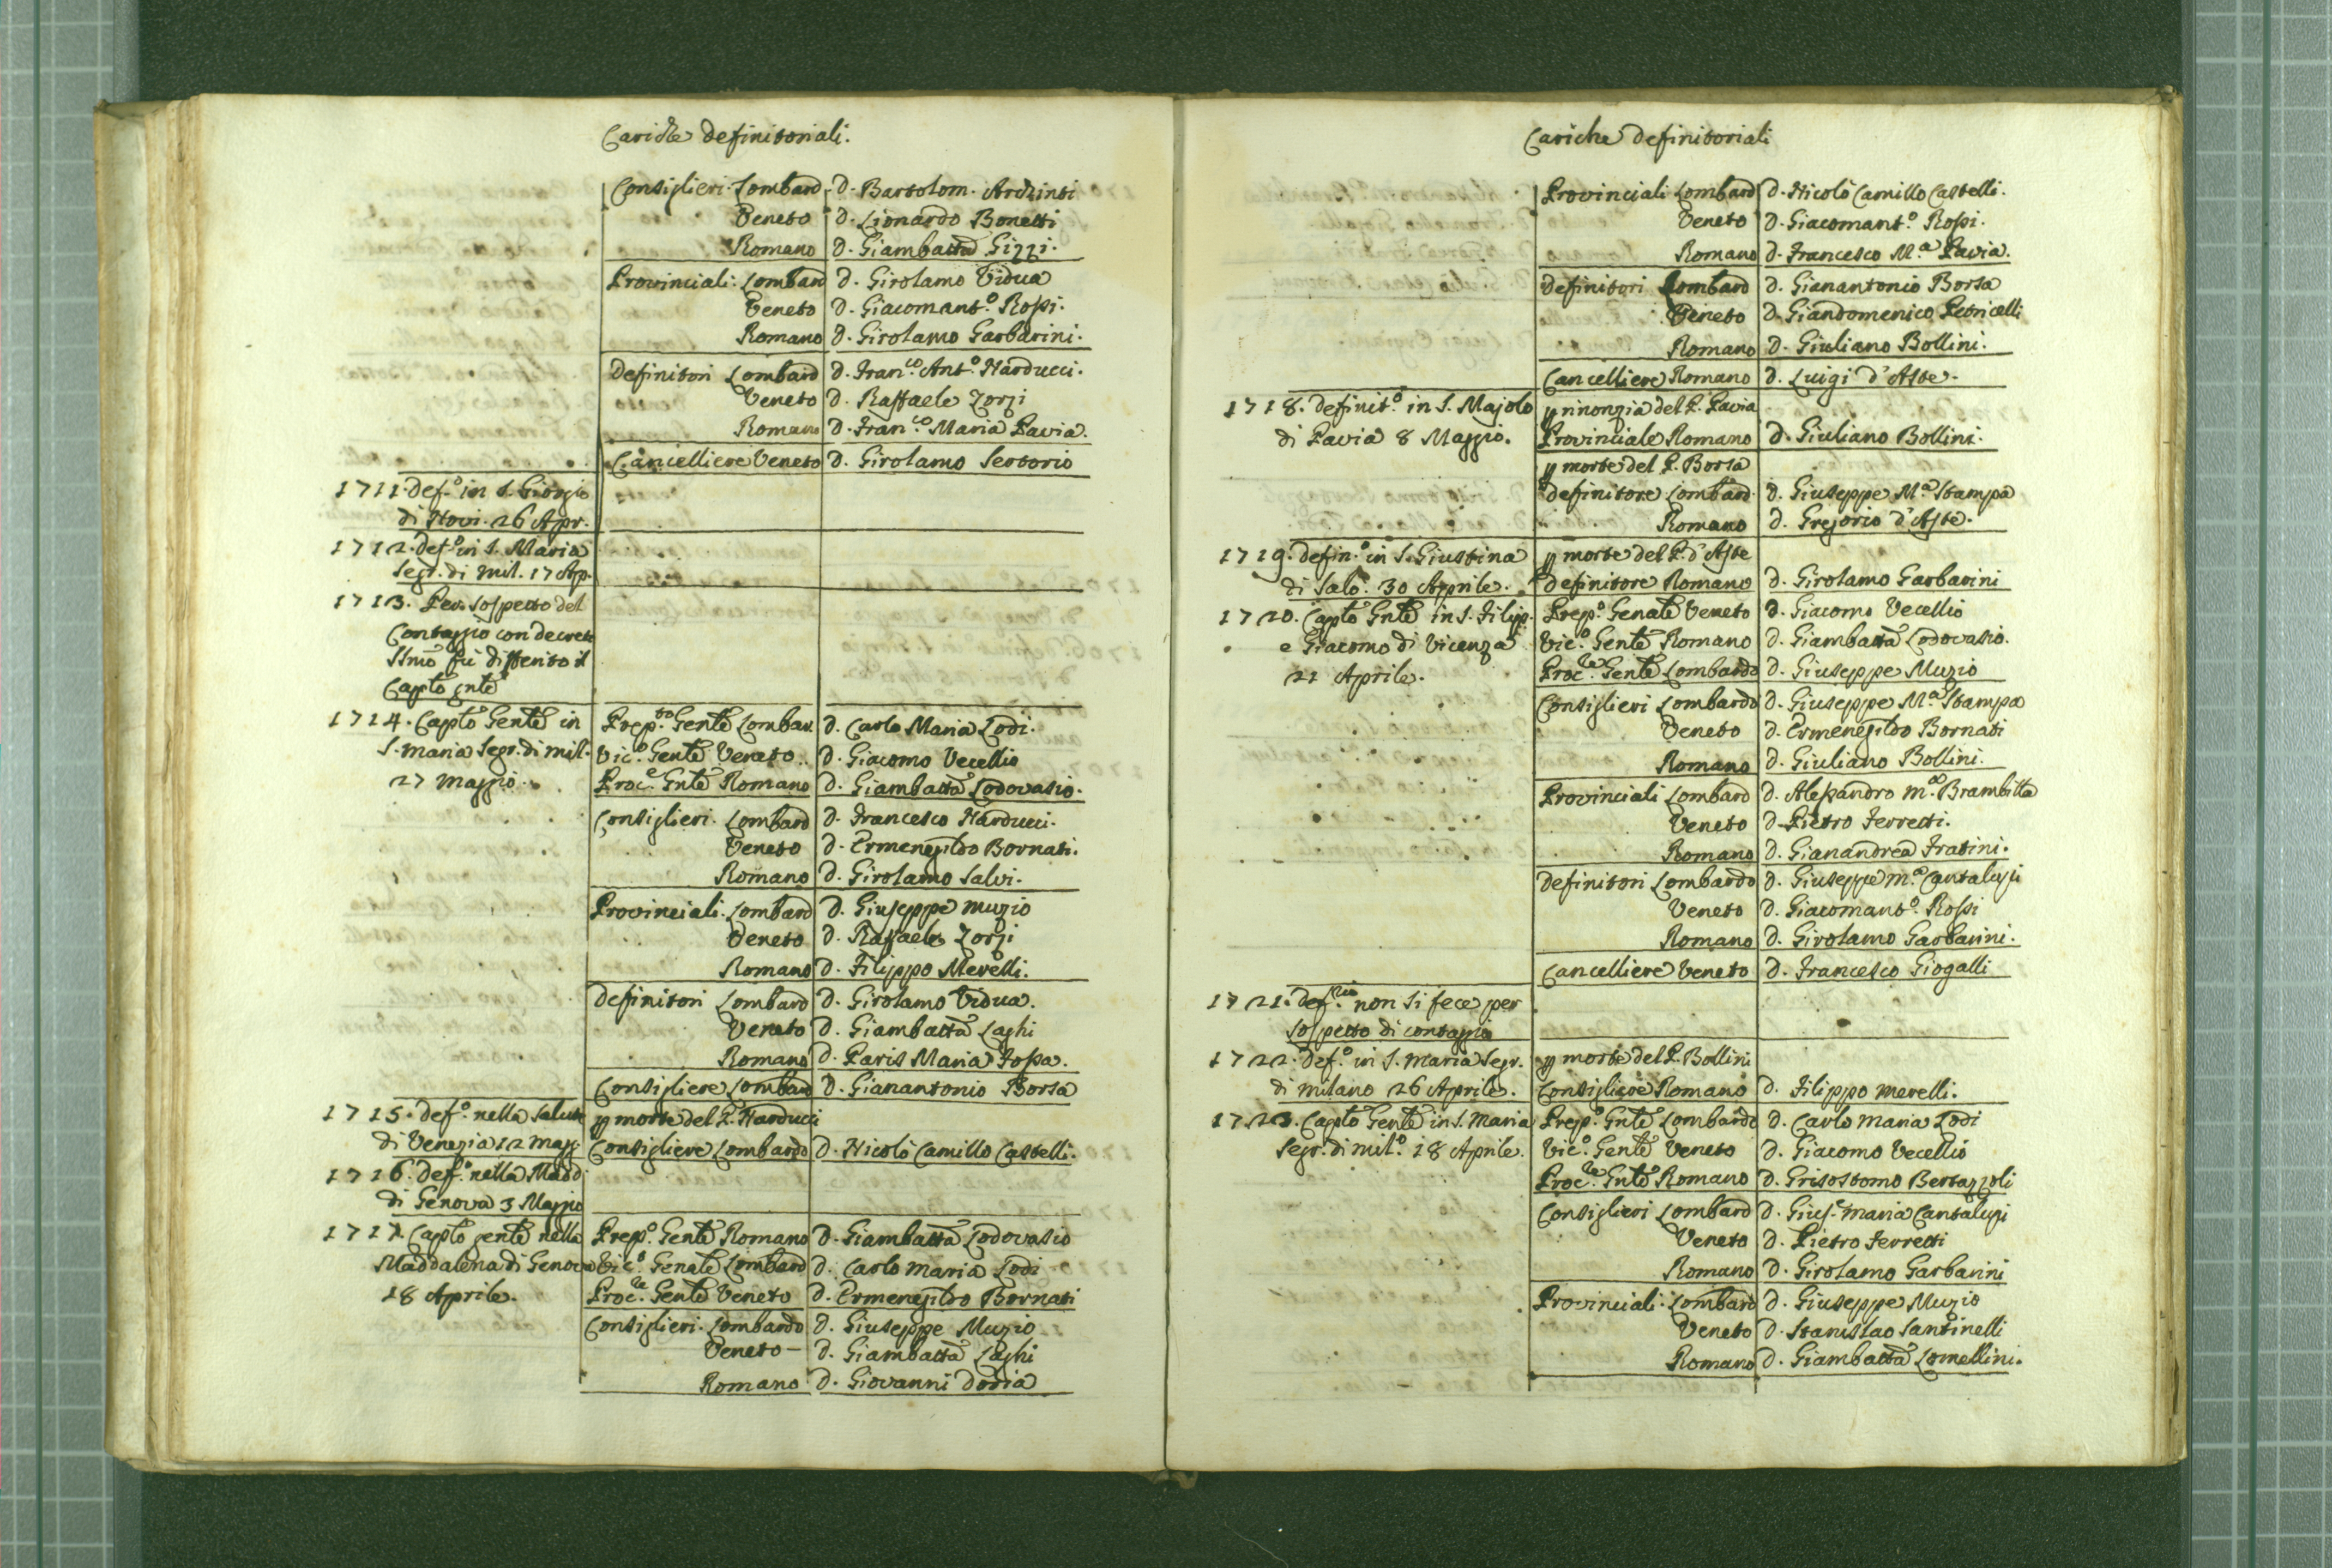 Cariche definitoriali.
Consiglieri. Lombard d. Bartolom. Archinti
Veneto d. Lionardo Bonetti
Romano d. Giambatta Gizzi.
Provinciali. Lombard d. Girolamo Vidua
Veneto d. Giacomant.o Rossi.
Romano d. Girolamo Garbarini.
Definitori Lombard d. Fran.co Ant.o Narducci.
Veneto d. Raffaele Zorzi
Romano d. Fran.co Maria Pavia.
Cancelliere Veneto d. Girolamo Sertorio
1711. def.o in S. Giorgio
di Novi. 26 Apr.
1712. Def.o in S. Maria
Segr. di Mil. 17 Ap.
1713. Per sospetto del
Contaggio con decreto
fù differito il
Capto gnte
1714. Capto Gente in Prep.to Gente Lombar. d. Carlo Maria Lodi.
S. Maria Segr. di Mil. Vic.o Gente Veneto.. d. Giacomo Vecellio
27 Maggio. Proc.e Gnte Romano d. Giambatta Lodovasio.
Consiglieri. Lombard d. Francesco Narducci.
Veneto d. Ermenegildo Bornati.
Romano d. Girolamo Salvi.
Provinciali. Lombard d. Giuseppe Muzio
Veneto d. Raffaele Zorzi
Romano d. Filippo Merelli.
Definitori Lombard d. Girolamo Vidua.
Veneto d. Giambatta Laghi
Romano d. Paris Maria Fossa.
Consigliere Lombard d. Gianantonio Borsa
1715. def.o nella Salute p morte del P. Narducci
di Venezia 12 Magg. Consigliere Lombardo d. Nicolò Camillo Castelli.
1716. def.o nella Madd.
di Genova 3 Maggio
1717. Capto gente nella Prep.o Gente Romano d. Giambatta Lodovasio
Maddalena di Genova Vic.o Genale Lombard d. Carlo Maria Lodi
18 Aprile. Proc.re Gente Veneto d. Ermenegildo Bornati
Consiglieri. Lombardo d. Giuseppe Muzio
Veneto – d. Giambatta Laghi
Romano d. Giovanni Doria
Cariche definitoriali
Provinciali Lombard d. Nicolò Camillo Castelli.
Veneto d. Giacomant.o Rossi.
Romano d. Francesco M.a Pavia.
Definitori Lombard d. Gianantonio Borsa
Veneto d. Giandomenico Petricelli
Romano d. Giuliano Bollini.
Cancelliere Romano d. Luigi d'Aste.
1718. Definit.o in S. Majolo p rinonzia del P. Pavia
di Pavia 8 Maggio. Provinciale Romano d. Giuliano Bollini.
p morte del P. Borsa
Definitore Lombard. d. Giuseppe M.a Stampa
Romano d. Gregorio d'Aste.
1719. defin.o in S. Giustina p morte del P. d'Aste
di Salò. 30 Aprile. Definitore Romano d. Girolamo Garbarini
1720. Capto Gnte in S. Filip. Prep.o Genale Veneto d. Giacomo Vecellio
e Giacomo di Vicenza Vic.o Gente Romano d. Giambatta Lodovasio.
21 Aprile. Proc.re Gente Lombardo d. Giuseppe Muzio
Consiglieri Lombardo d. Giuseppe M.a Stampa
Veneto d. Ermenegildo Bornati
Romano d. Giuliano Bollini.
Provinciali Lombard d. Alessandro M.a Brambilla
Veneto d. Pietro Ferretti.
Romano d. Gianandrea Fratini.
Definitori Lombardo d. Giuseppe M.a Cantaluzi
Veneto d. Giacomant.o Rossi
Romano d. Girolamo Garbarini.
Cancelliere Veneto d. Francesco Giogalli
1721. Def.rio non si fece per
sospetto di contaggio
1722. Def.o in S. Maria Segr. p morte del P. Bollini
di Milano 26 Aprile. Consigliere Romano d. Filippo Merelli.
1723. Capto Gente in S. Maria Prep.o Gnte Lombardo d. Carlo Maria Lodi
Segr. di Mil.o 18 Aprile. Vic.o Gente Veneto d. Giacomo Vecellio
Proc.re Gnte Romano d. Grisostomo Bertazzoli
Consiglieri Lombard d. Gius.e Maria Cantaluzi
Veneto d. Pietro Ferretti
Romano d. Girolamo Garbarini
Provinciali. Lombard d. Giuseppe Muzio
Veneto d. Stanislao Santinelli
Romano d. Giambatta Lomellini.